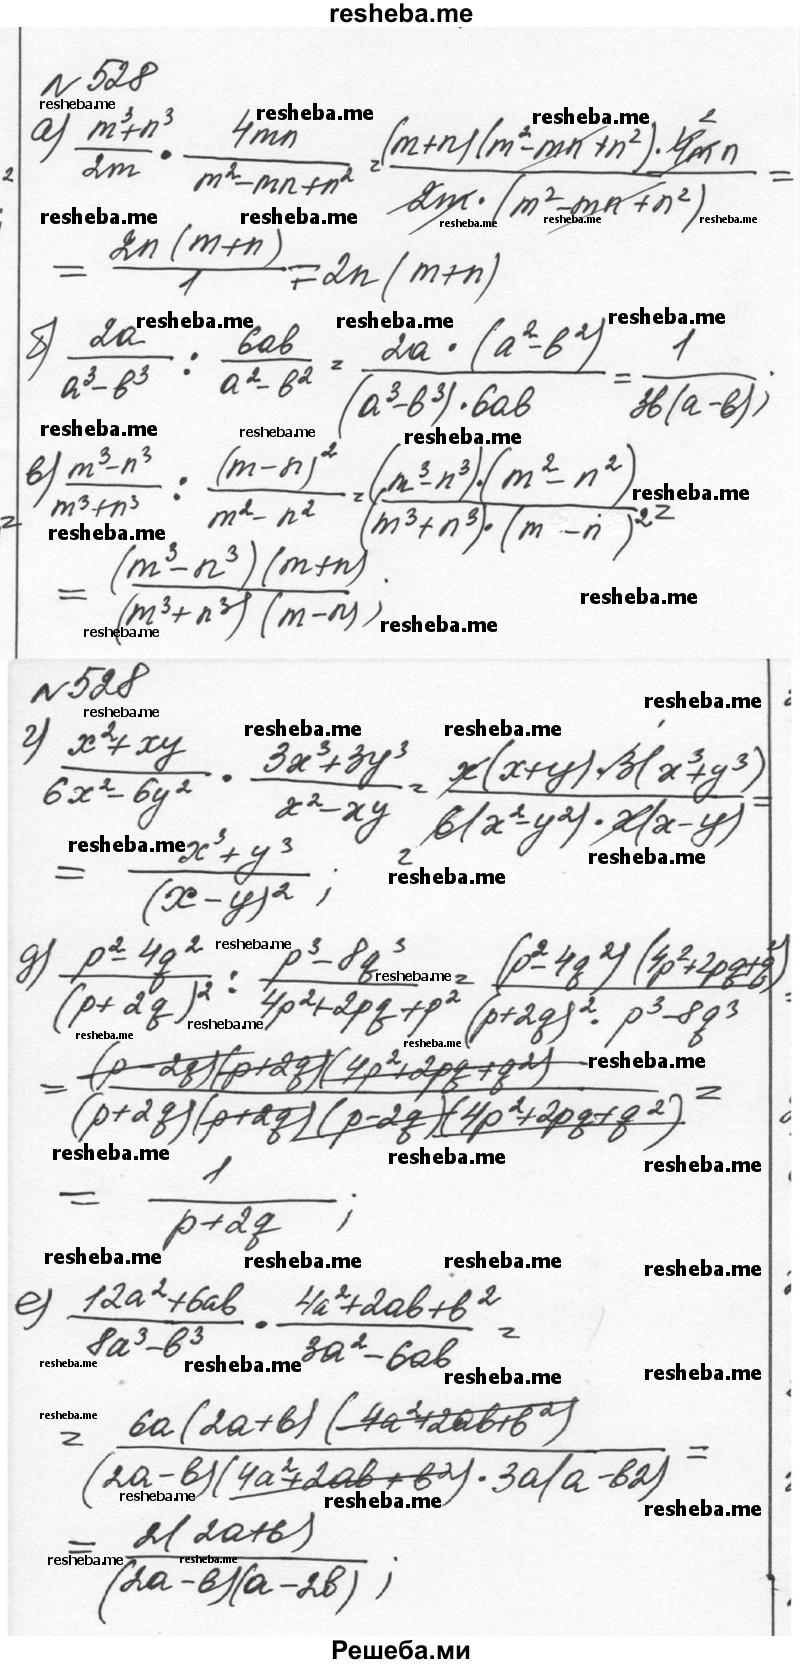 resheba.me
№ 528
resheba.me
а) (m³+n³)/(2m) · (4mn)/(m²-mn+n²) = ((m+n)(m²-mn+n²)·4mn)/(2m·(m²-mn+n²)) =
= (2n(m+n))/1 = 2n(m+n)
б) (2a)/(a³-b³) : (6ab)/(a²-b²) = (2a·(a²-b²))/((a³-b³)·6ab) = 1/(3b(a-b));
в) (m³-n³)/(m³+n³) : ((m-n)²)/(m²-n²) = ((m³-n³)·(m²-n²))/((m³+n³)·(m-n)²) =
= ((m³-n³)(m+n))/((m³+n³)(m-n));
№ 528
resheba.me
г) (x²+xy)/(6x²-6y²) · (3x³+3y³)/(x²-xy) = (x(x+y)·3(x³+y³))/(6(x²-y²)·x(x-y)) =
= (x³+y³)/((x-y)²);
д) (p²-4q²)/((p+2q)²) : (p³-8q³)/(4p²+2pq+p²) = ((p²-4q²)(4p²+2pq+q²))/((p+2q)²·p³-8q³) =
= ((p-2q)(p+2q)(4p²+2pq+q²))/((p+2q)(p+2q)(p-2q)(4p²+2pq+q²)) =
= 1/(p+2q);
е) (12a²+6ab)/(8a³-b³) · (4a²+2ab+b²)/(3a²-6ab) =
= (6a(2a+b)(4a²+2ab+b²))/((2a-b)(4a²+2ab+b²)·3a(a-b2)) =
= (2(2a+b))/((2a-b)(a-2b));
Решеба.ми